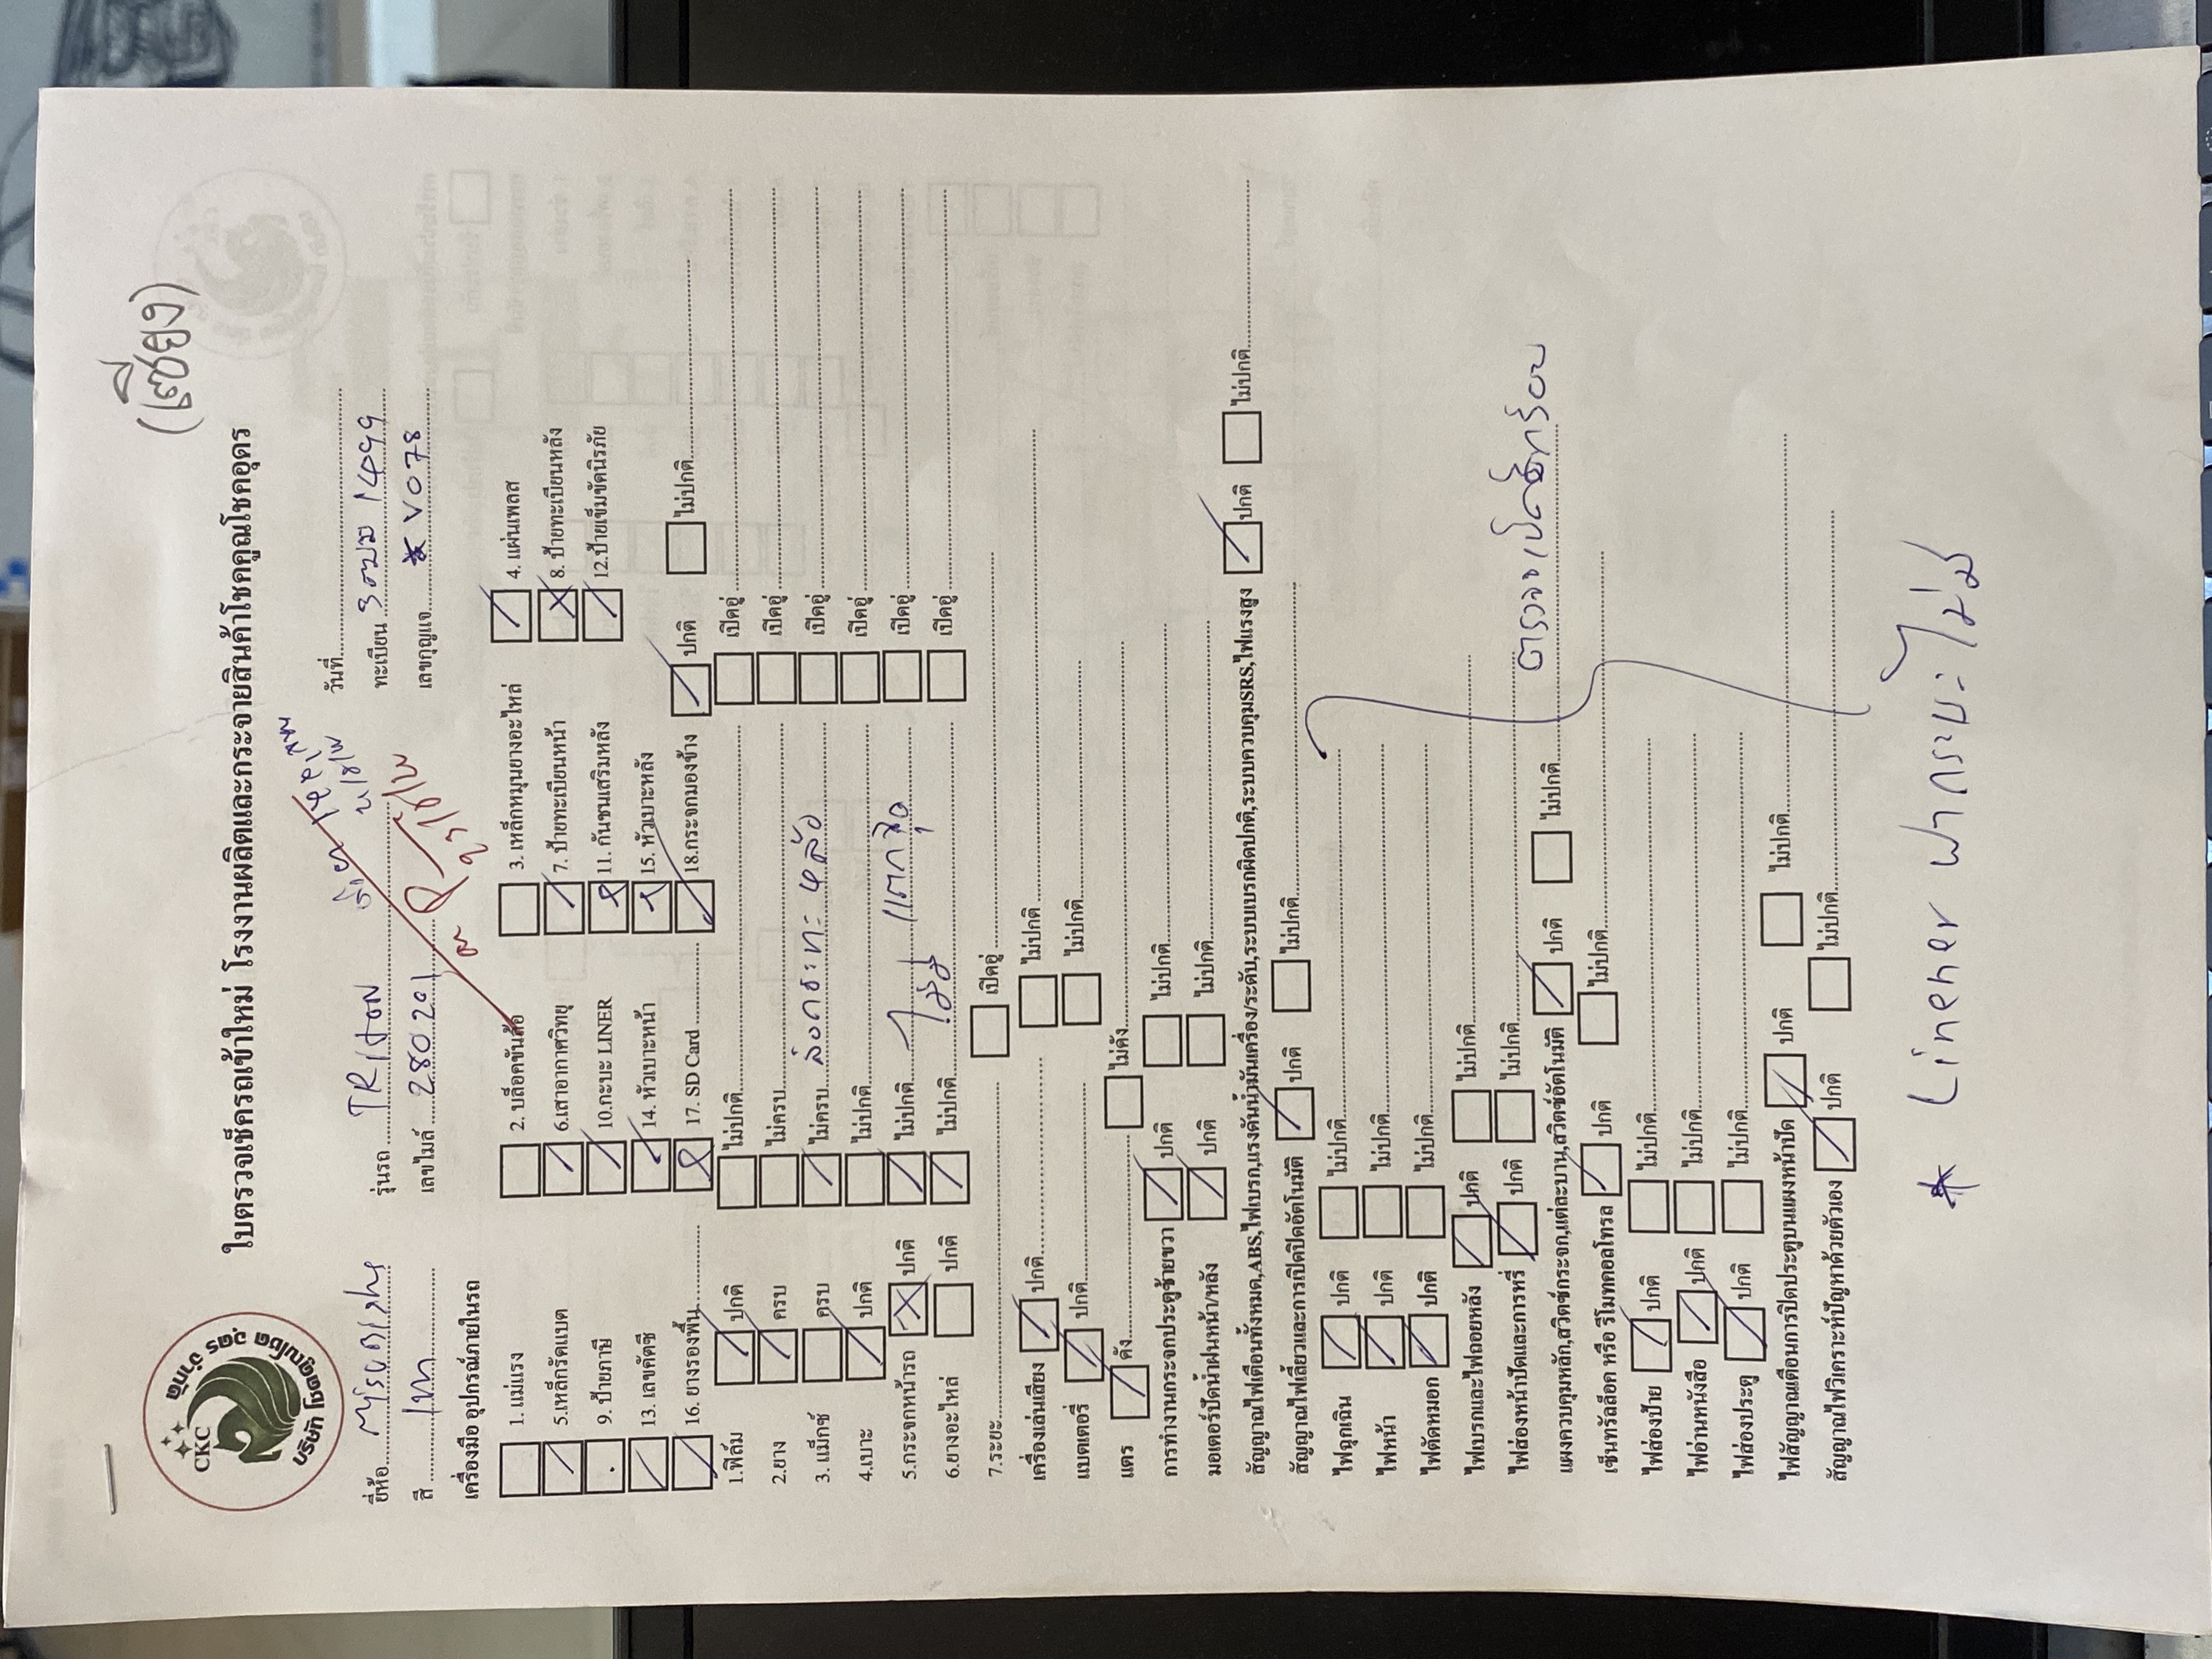 (เซียง)
CKC
บริษัท โชคคูณโชค อุดร จำกัด
ใบตรวจเช็ครถเข้าใหม่ โรงงานผลิตและกระจายสินค้าโชคคูณโชคอุดร
วันที่
ยี่ห้อ รุ่นรถ TRITON ทะเบียน 3ฒฆ 1499
สี เทา เลขไมล์ 280201 เลขกุญแจ * V078
เครื่องมือ อุปกรณ์ภายในรถ
1. แม่แรง 2. บล็อคขันล้อ 3. เหล็กหมุนยางอะไหล่ 4. แผ่นเพลส
5.เหล็กรัดแบต 6.เสาอากาศวิทยุ 7. ป้ายทะเบียนหน้า 8. ป้ายทะเบียนหลัง
9. ป้ายภาษี 10.กะบะ LINER 11. กันชนเสริมหลัง 12.ป้ายเข็มขัดนิรภัย
13. เลขคัตซี 14. หัวเบาะหน้า 15. หัวเบาะหลัง
16. ยางรองพื้น 17. SD Card 18.กระจกมองข้าง ปกติ ไม่ปกติ
1.ฟิล์ม ปกติ ไม่ปกติ เปิดอู่
2.ยาง ครบ ไม่ครบ เปิดอู่
3. แม็กซ์ ครบ ไม่ครบ เปิดอู่
4.เบาะ ปกติ ไม่ปกติ เปิดอู่
5.กระจกหน้ารถ ปกติ ไม่ปกติ เปิดอู่
6.ยางอะไหล่ ปกติ ไม่ปกติ ไม่มี เปิดอู่
7.ระยะ เปิดอู่
เครื่องเล่นเสียง ปกติ ไม่ปกติ
แบตเตอรี่ ปกติ ไม่ปกติ
แตร ดัง ไม่ดัง
การทำงานกระจกประตูซ้ายขวา ปกติ ไม่ปกติ
มอเตอร์ปัดน้ำฝนหน้า/หลัง ปกติ ไม่ปกติ
สัญญาณไฟเตือนทั้งหมด,ABS,ไฟเบรก,แรงดันน้ำมันเครื่อง/ระดับ,ระบบเบรกผิดปกติ,ระบบควบคุมSRS,ไฟแรงสูง ปกติ ไม่ปกติ
สัญญาณไฟเลี้ยวและการเปิดปิดอัตโนมัติ ปกติ ไม่ปกติ
ไฟฉุกเฉิน ปกติ ไม่ปกติ
ไฟหน้า ปกติ ไม่ปกติ
ไฟตัดหมอก ปกติ ไม่ปกติ
ไฟเบรกและไฟถอยหลัง ปกติ ไม่ปกติ
ไฟส่องหน้าปัดและการหรี่ ปกติ ไม่ปกติ
แผงควบคุมหลัก,สวิตซ์กระจก,แต่ละบาน,สวิตซ์อัตโนมัติ ปกติ ไม่ปกติ
เซ็นทรัลล็อค หรือ รีโมทคอลโทรล ปกติ ไม่ปกติ
ไฟส่องป้าย ปกติ ไม่ปกติ
ไฟอ่านหนังสือ ปกติ ไม่ปกติ
ไฟส่องประตู ปกติ ไม่ปกติ
ไฟสัญญาณเตือนการปิดประตูบนแผงหน้าปัด ปกติ ไม่ปกติ
สัญญาณไฟวิเคราะห์ปัญหาด้วยตัวเอง ปกติ ไม่ปกติ
* Linener ฝากระบะ ไม่มี